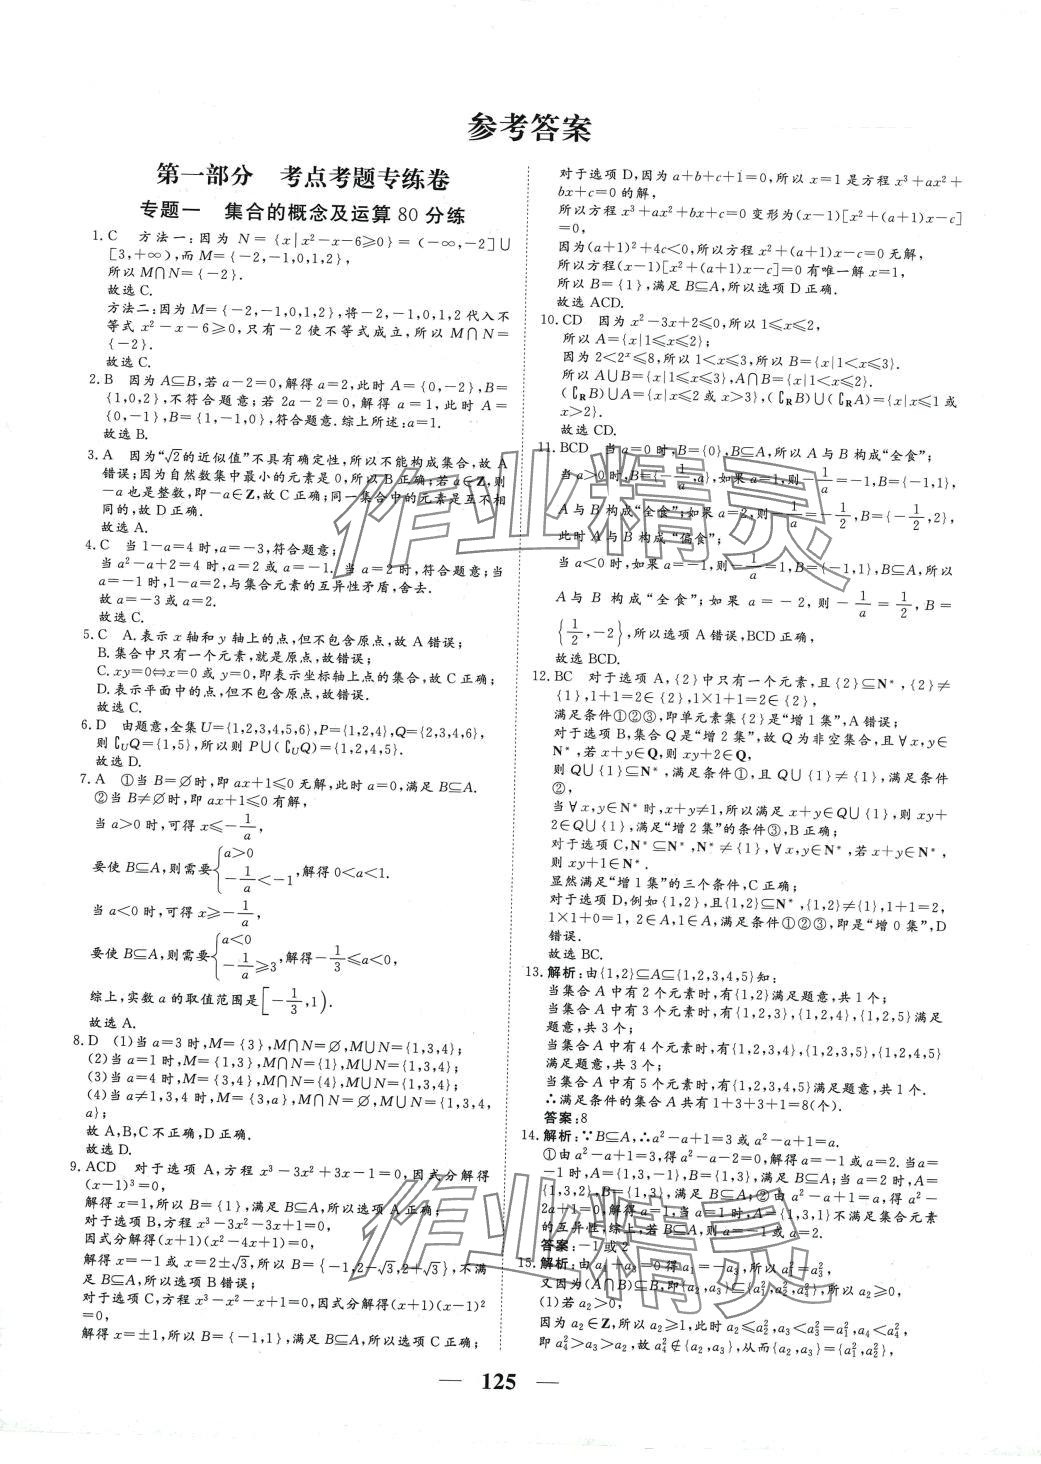 参考答案
第一部分　考点考题专练卷
专题一　集合的概念及运算 80 分练
1. C　方法一:因为 N={x|x²-x-6⩾0}=(-∞,-2]∪
[3,+∞),而 M={-2,-1,0,1,2},
所以 M∩N={-2}.
故选 C.
方法二:因为 M={-2,-1,0,1,2},将-2,-1,0,1,2 代入不
等式 x²-x-6⩾0,只有-2 使不等式成立,所以 M∩N=
{-2}.
故选 C.
2. B　因为 A⊆B,若 a-2=0,解得 a=2,此时 A={0,-2},B=
{1,0,2},不符合题意;若 2a-2=0,解得 a=1,此时 A=
{0,-1},B={1,-1,0},符合题意.综上所述:a=1.
故选 B.
3. A　因为“√2的近似值”不具有确定性,所以不能构成集合,故 A
错误;因为自然数集中最小的元素是 0,所以 B 正确;若 a∈Z,则
-a 也是整数,即-a∈Z,故 C 正确;同一集合中的元素是互不相
同的,故 D 正确.
故选 A.
4. C　当 1-a=4 时,a=-3,符合题意;
当 a²-a+2=4 时,a=2 或 a=-1. 当 a=2 时,符合题意;当
a=-1 时,1-a=2,与集合元素的互异性矛盾,舍去.
故 a=-3 或 a=2.
故选 C.
5. C　A. 表示 x 轴和 y 轴上的点,但不包含原点,故 A 错误;
B. 集合中只有一个元素,就是原点,故错误;
C. xy=0⇔x=0 或 y=0,即表示坐标轴上点的集合,故 C 正确;
D. 表示平面中的点,但不包含原点,故错误.
故选 C.
6. D　由题意,全集 U={1,2,3,4,5,6},P={1,2,4},Q={2,3,4,6},
则 ∁UQ={1,5},所以则 P∪(∁UQ)={1,2,4,5}.
故选 D.
7. A　①当 B=∅时,即 ax+1⩽0 无解,此时 a=0,满足 B⊆A.
②当 B≠∅时,即 ax+1⩽0 有解,
当 a>0 时,可得 x⩽-1/a,
要使 B⊆A,则需要{a>0, -1/a<-1,解得 0<a<1.
当 a<0 时,可得 x⩾-1/a,
要使 B⊆A,则需要{a<0, -1/a⩾3,解得-1/3⩽a<0,
综上,实数 a 的取值范围是[-1/3,1).
故选 A.
8. D　(1)当 a=3 时,M={3},M∩N=∅,M∪N={1,3,4};
(2)当 a=1 时,M={1,3},M∩N={1},M∪N={1,3,4};
(3)当 a=4 时,M={3,4},M∩N={4},M∪N={1,3,4};
(4)当 a≠1,3,4 时,M={3,a},M∩N=∅,M∪N={1,3,4,
a};
故 A,B,C 不正确,D 正确.
故选 D.
9. ACD　对于选项 A,方程 x³-3x²+3x-1=0,因式分解得
(x-1)³=0,
解得 x=1,所以 B={1},满足 B⊆A,所以选项 A 正确;
对于选项 B,方程 x³-3x²-3x+1=0,
因式分解得(x+1)(x²-4x+1)=0,
解得 x=-1 或 x=2±√3,所以 B={-1,2-√3,2+√3},不满
足 B⊆A,所以选项 B 错误;
对于选项 C,方程 x³-x²-x+1=0,因式分解得(x+1)(x-1)²
=0,
解得 x=±1,所以 B={-1,1},满足 B⊆A,所以选项 C 正确;
对于选项 D,因为 a+b+c+1=0,所以 x=1 是方程 x³+ax²+
bx+c=0 的解,
所以方程 x³+ax²+bx+c=0 变形为(x-1)[x²+(a+1)x-c]
=0,
因为(a+1)²+4c<0,所以方程 x²+(a+1)x-c=0 无解,
所以方程(x-1)[x²+(a+1)x-c]=0 有唯一解 x=1,
所以 B={1},满足 B⊆A,所以选项 D 正确.
故选 ACD.
10. CD　因为 x²-3x+2⩽0,所以 1⩽x⩽2,
所以 A={x|1⩽x⩽2};
因为 2<2ˣ⩽8,所以 1<x⩽3,所以 B={x|1<x⩽3}.
所以 A∪B={x|1⩽x⩽3},A∩B={x|1<x⩽2},
(∁RB)∪A={x|x⩽2 或 x>3},(∁RB)∪(∁RA)={x|x⩽1 或
x>2}.
故选 CD.
11. BCD　当 a=0 时,B={0},B⊆A,所以 A 与 B 构成“全食”;
当 a>0 时,B={-1/a,a},如果 a=1,则-1/a=-1,B={-1,1},
A 与 B 构成“全食”;如果 a=2,则-1/a=-1/2,B={-1/2,2},
此时 A 与 B 构成“偏食”;
当 a<0 时,如果 a=-1,则-1/a=1,B={-1,1},B⊆A,所以
A 与 B 构成“全食”;如果 a=-2,则-1/a=1/2,B=
{1/2,-2},所以选项 A 错误,BCD 正确,
故选 BCD.
12. BC　对于选项 A,{2}中只有一个元素,且{2}⊆N*,{2}≠
{1},1+1=2∈{2},1×1+1=2∈{2},
满足条件①②③,即单元素集{2}是“增 1 集”,A 错误;
对于选项 B,集合 Q 是“增 2 集”,故 Q 为非空集合,且∀x,y∈
N*,若 x+y∈Q,则 xy+2∈Q,
则 Q∪{1}⊆N*,满足条件①,且 Q∪{1}≠{1},满足条件
②,
当∀x,y∈N*时,x+y≠1,所以满足 x+y∈Q∪{1},则 xy+
2∈Q∪{1},满足“增 2 集”的条件③,B 正确;
对于选项 C,N*⊆N*,N*≠{1},∀x,y∈N*,若 x+y∈N*,
则 xy+1∈N*.
显然满足“增 1 集”的三个条件,C 正确;
对于选项 D,例如{1,2},且{1,2}⊆N*,{1,2}≠{1},1+1=2,
1×1+0=1, 2∈A,1∈A,满足条件①②③,即是“增 0 集”,D
错误.
故选 BC.
13. 解析:由{1,2}⊆A⊆{1,2,3,4,5}知:
当集合 A 中有 2 个元素时,有{1,2}满足题意,共 1 个;
当集合 A 中有 3 个元素时,有{1,2,3},{1,2,4},{1,2,5}满足
题意,共 3 个;
当集合 A 中有 4 个元素时,有{1,2,3,4},{1,2,3,5},{1,2,4,5}
满足题意,共 3 个;
当集合 A 中有 5 个元素时,有{1,2,3,4,5}满足题意,共 1 个.
∴满足条件的集合 A 共有 1+3+3+1=8(个).
答案:8
14. 解析:∵B⊆A,∴a²-a+1=3 或 a²-a+1=a.
①由 a²-a+1=3,得 a²-a-2=0,解得 a=-1 或 a=2.当 a=-
1 时,A={1,3,-1},B={1,3},满足 B⊆A;当 a=2 时,A=
{1,3,2},B={1,3},满足 B⊆A;②由 a²-a+1=a,得 a²-
2a+1=0,解得 a=1,当 a=1 时,A={1,3,1}不满足集合元素
的互异性,综上,若 B⊆A,则 a=-1 或 a=2.
答案:-1 或 2
15. 解析:由 a₁+a₃=0 得 a₁=-a₃,所以 a₁²=a₃²,
又因为(A∩B)⊆B,即{a₂,a₃}⊆{a₁²,a₂²,a₄²},所以 a₂⩾0,
(1)若 a₂>0,
因为 a₂∈Z,所以 a₂⩾1,此时 a₂⩽a₂²,a₃<a₃²=a₁²,a₄<a₄²,
即 a₄²>a₃>a₂,故 a₄²∉{a₂,a₃},从而{a₂,a₃}={a₁²,a₂²},
— 125 —
作业精灵
作业精灵